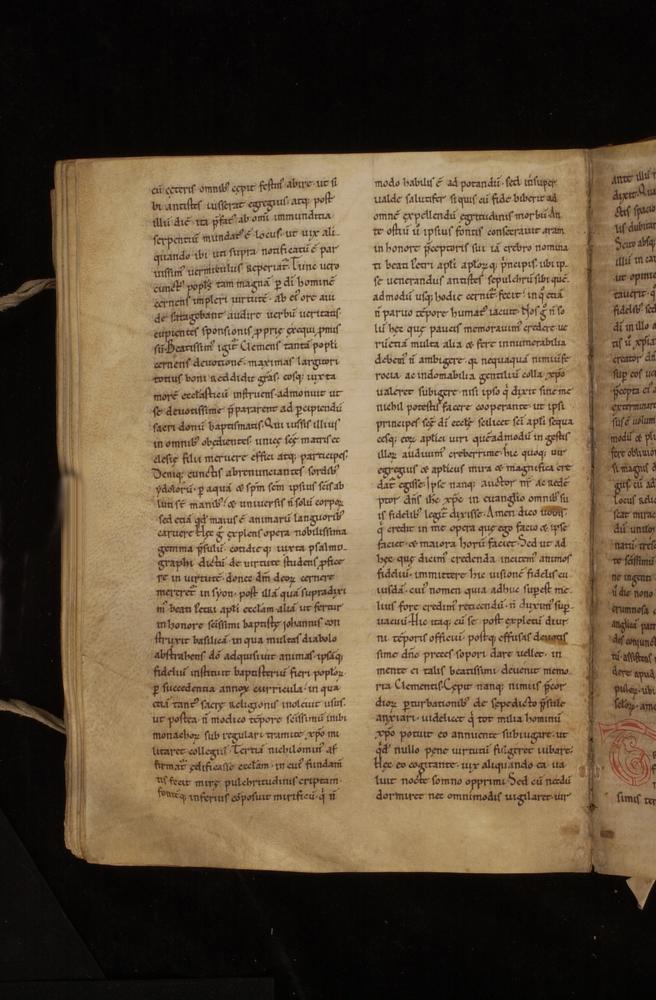 cū ceteris omnib; cepit festin᷒ abire· ut si
bi antistes iusserat egregius· atq; post
illū diē· ita p̄fat᷒ ab om̄i immunditia
serpentiū mundat᷒ ē locus· ut uix ali
quando ibi uti supra notificatū ē par
uissim᷒ uermiculus reperiat᷑. Tunc uero
cunct᷒ popl᷒s tam magnā p̄ dī hominē
cernens impleri uirtutē· ab eius ore aui
de satagebant audire uerbū ueritatis
cupientes sponsionis pprię exequi pmis
sū. Beatissim᷒ igit᷑ Clemens tantā popli
cernens deuotionē· maximas largitori
totius boni reddidit grās· eosq; iuxta
morē ecclasticū instruens· admonuit ut
se deuotissime p̄pararent ad pcipiendū
sacri donū baptismatis. Qui iussis illius
in omnib; obedientes· unicę scę matris ec
clesię filii meruere effici atq; participes.
Deniq; cunctis abrenunciantes sordib;
ydolorū· p aquā & sp̄m sc̄m ipsius sc̄is ab
luti sē manib;· & uniuersis n̄ solū corpor̄
sed etiā qd̄ maius ē animarū languorib;
caruere. Hęc g᷑ explens opera nobilissima
gemma p̄sulū· cotidieq; iuxta psalmo
graphi dictū de uirtute studens pfice
re in uirtutē· donec dm̄ deor̄ cernere
mereret᷑ in syon· post illā quā supradixi
m᷒ beati petri apl̄i eccl̄am· aliā ut fertur
in honore sc̄issimi baptistę iohannis con
struxit basilicā· in qua multas diabolo
abstrahens dō adquisiuit animas· ipsāq;
fidelib᷒ instituit baptisteriū fieri poplor̄
p succedentia annor̄ curricula· in qua
etiā tant᷒ sacrę religionis inoleuit usus·
ut postea n̄ modico tēpore sc̄issimū inibi
monachor̄ sub regulari tramite xp̄o mi
litaret collegiū. Tertiā nichilomin᷒ af
firmat᷑ ędificasse eccl̄am· in cui᷒ fundam̄
tis fecit mirę pulchritudinis criptam·
fontēq; inferius cōposuit mirificū· q̄ n̄
modo habilis ē ad potandū· sed insuper
ualde salutifer siquis eū fide biberit ad
omnē expellendū egritudinis morbū. An
te ostiū u᷒ ipsius fontis consecrauit aram
in honore p̄ceptoris sui iā crebro nomina
ti beati petri apl̄i aplor̄q; p̄ncipis· ubi ip
se uenerandus antistes sepulchrū sibi quē
admodū usq; hodie cernit᷑ fecit· inq̄ etiā
n̄ paruo tēpore humat᷒ iacuit. Nos g᷑ n̄ so
lū hęc quę paucis memorauim᷒ credere ue
rū etiā multa alia & fere innumerabilia
debem᷒ n̄ ambigere· q̄ nequaquā nimiū fe
rocia ac indomabilia gentiliū colla xp̄o
ualeret subigere· nisi ipso q̄ dixit sine me
nichil potestis facere cooperante· ut ipsi
principes scę dī eccl̄ę· scilicet sc̄i apl̄i sequa
cesq; eor̄ aplici uiri· quēadmodū in gestis
illor̄ audiuim᷒ creberrime· hic quoq; uir
egregius & aplicus mira & magnifica cre
dat᷑ egisse. Ipse nanq; auctor nr̄ ac redē
ptor dn̄s ihc xp̄c in euanglio omnib; su
is fidelib; legit᷑ dixisse. Amen dico uobis·
q̄ credit in me opera quę ego facio & ipse
faciet· & maiora horū faciet. Sed ut ad
hęc quę dicim᷒ credenda incitem᷒ animos
fideliū· immittere hic uisionē fidelis cu
iusdā· cui᷒ nomen quia adhuc supest me
lius fore credim᷒ reticendū· n̄ duxim᷒ sup
uacuū. Hic itaq; cū se post expletū diur
ni tēporis officiū· postq; effusas deuotis
sime dn̄o preces sopori dare uellet· in
mente ei talis beatissimi deuenit memo
ria Clementis. Cępit nanq; nimiis p̄cor
dior̄ pturbationib; de sępedicto p̄sule
anxiari· uidelicet q̄ tot milia hominū
xp̄o potuit eo annuente subiugare· ut
qd̄ nullo pene uirtutū fulgeret iubare.
Hęc eo cogitante· uix aliquando ea ua
luit nocte somno opprimi. Sed cū necdū
dormiret nec omnimodis uigilaret uir